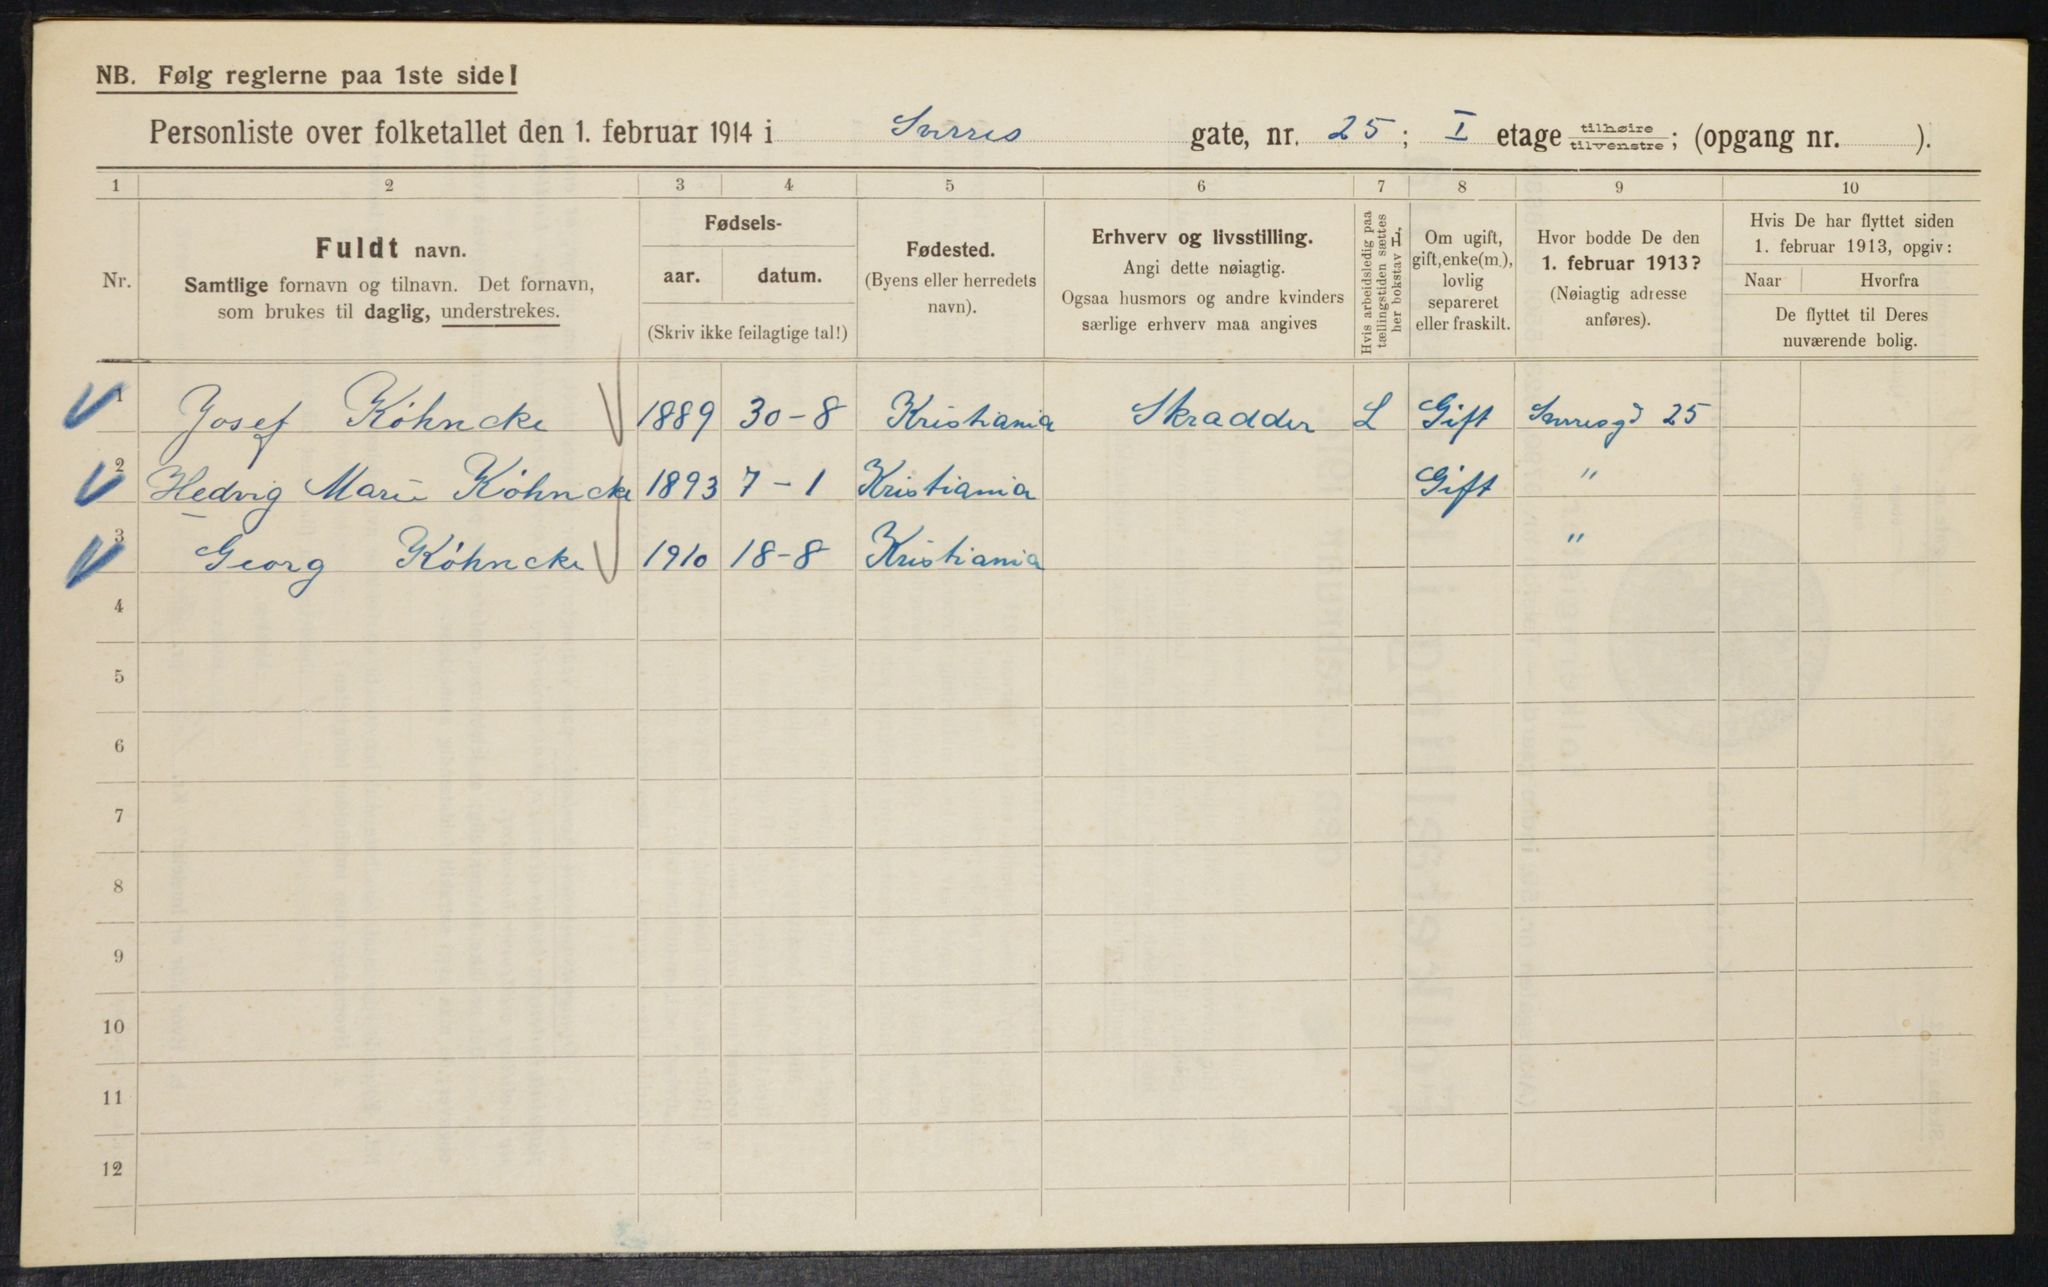 NB. Følg reglerne paa 1ste side!
Personliste over folketallet den 1. februar 1914 i Sverres gate, nr. 25; I etage tilhøire tilvenstre; (opgang nr. ).
1 2 3 4 5 6 7 8 9 10
Nr.
Fuldt navn.
Samtlige fornavn og tilnavn. Det fornavn,
som brukes til daglig, understrekes.
Fødsels-
aar. datum.
(Skriv ikke feilagtige tal!)
Fødested.
(Byens eller herredets
navn).
Erhverv og livsstilling.
Angi dette nøiagtig.
Ogsaa husmors og andre kvinders
særlige erhverv maa angives
Hvis arbeidsledig paa
tællingstiden sættes
her bokstav L,
Om ugift,
gift, enke(m.),
lovlig
separeret
eller fraskilt.
Hvor bodde De den
1. februar 1913?
(Nøiagtig adresse
anføres).
Hvis De har flyttet siden
1. februar 1913, opgiv:
Naar Hvorfra
De flyttet til Deres
nuværende bolig.
1 Josef Köhncke 1889 30-8 Kristiania Skrædder L Gift Sverresgd 25
2 Hedvig Marie Köhncke 1893 7-1 Kristiania Gift "
3 Georg Köhncke 1910 18-8 Kristiania "
4
5
6
7
8
9
10
11
12